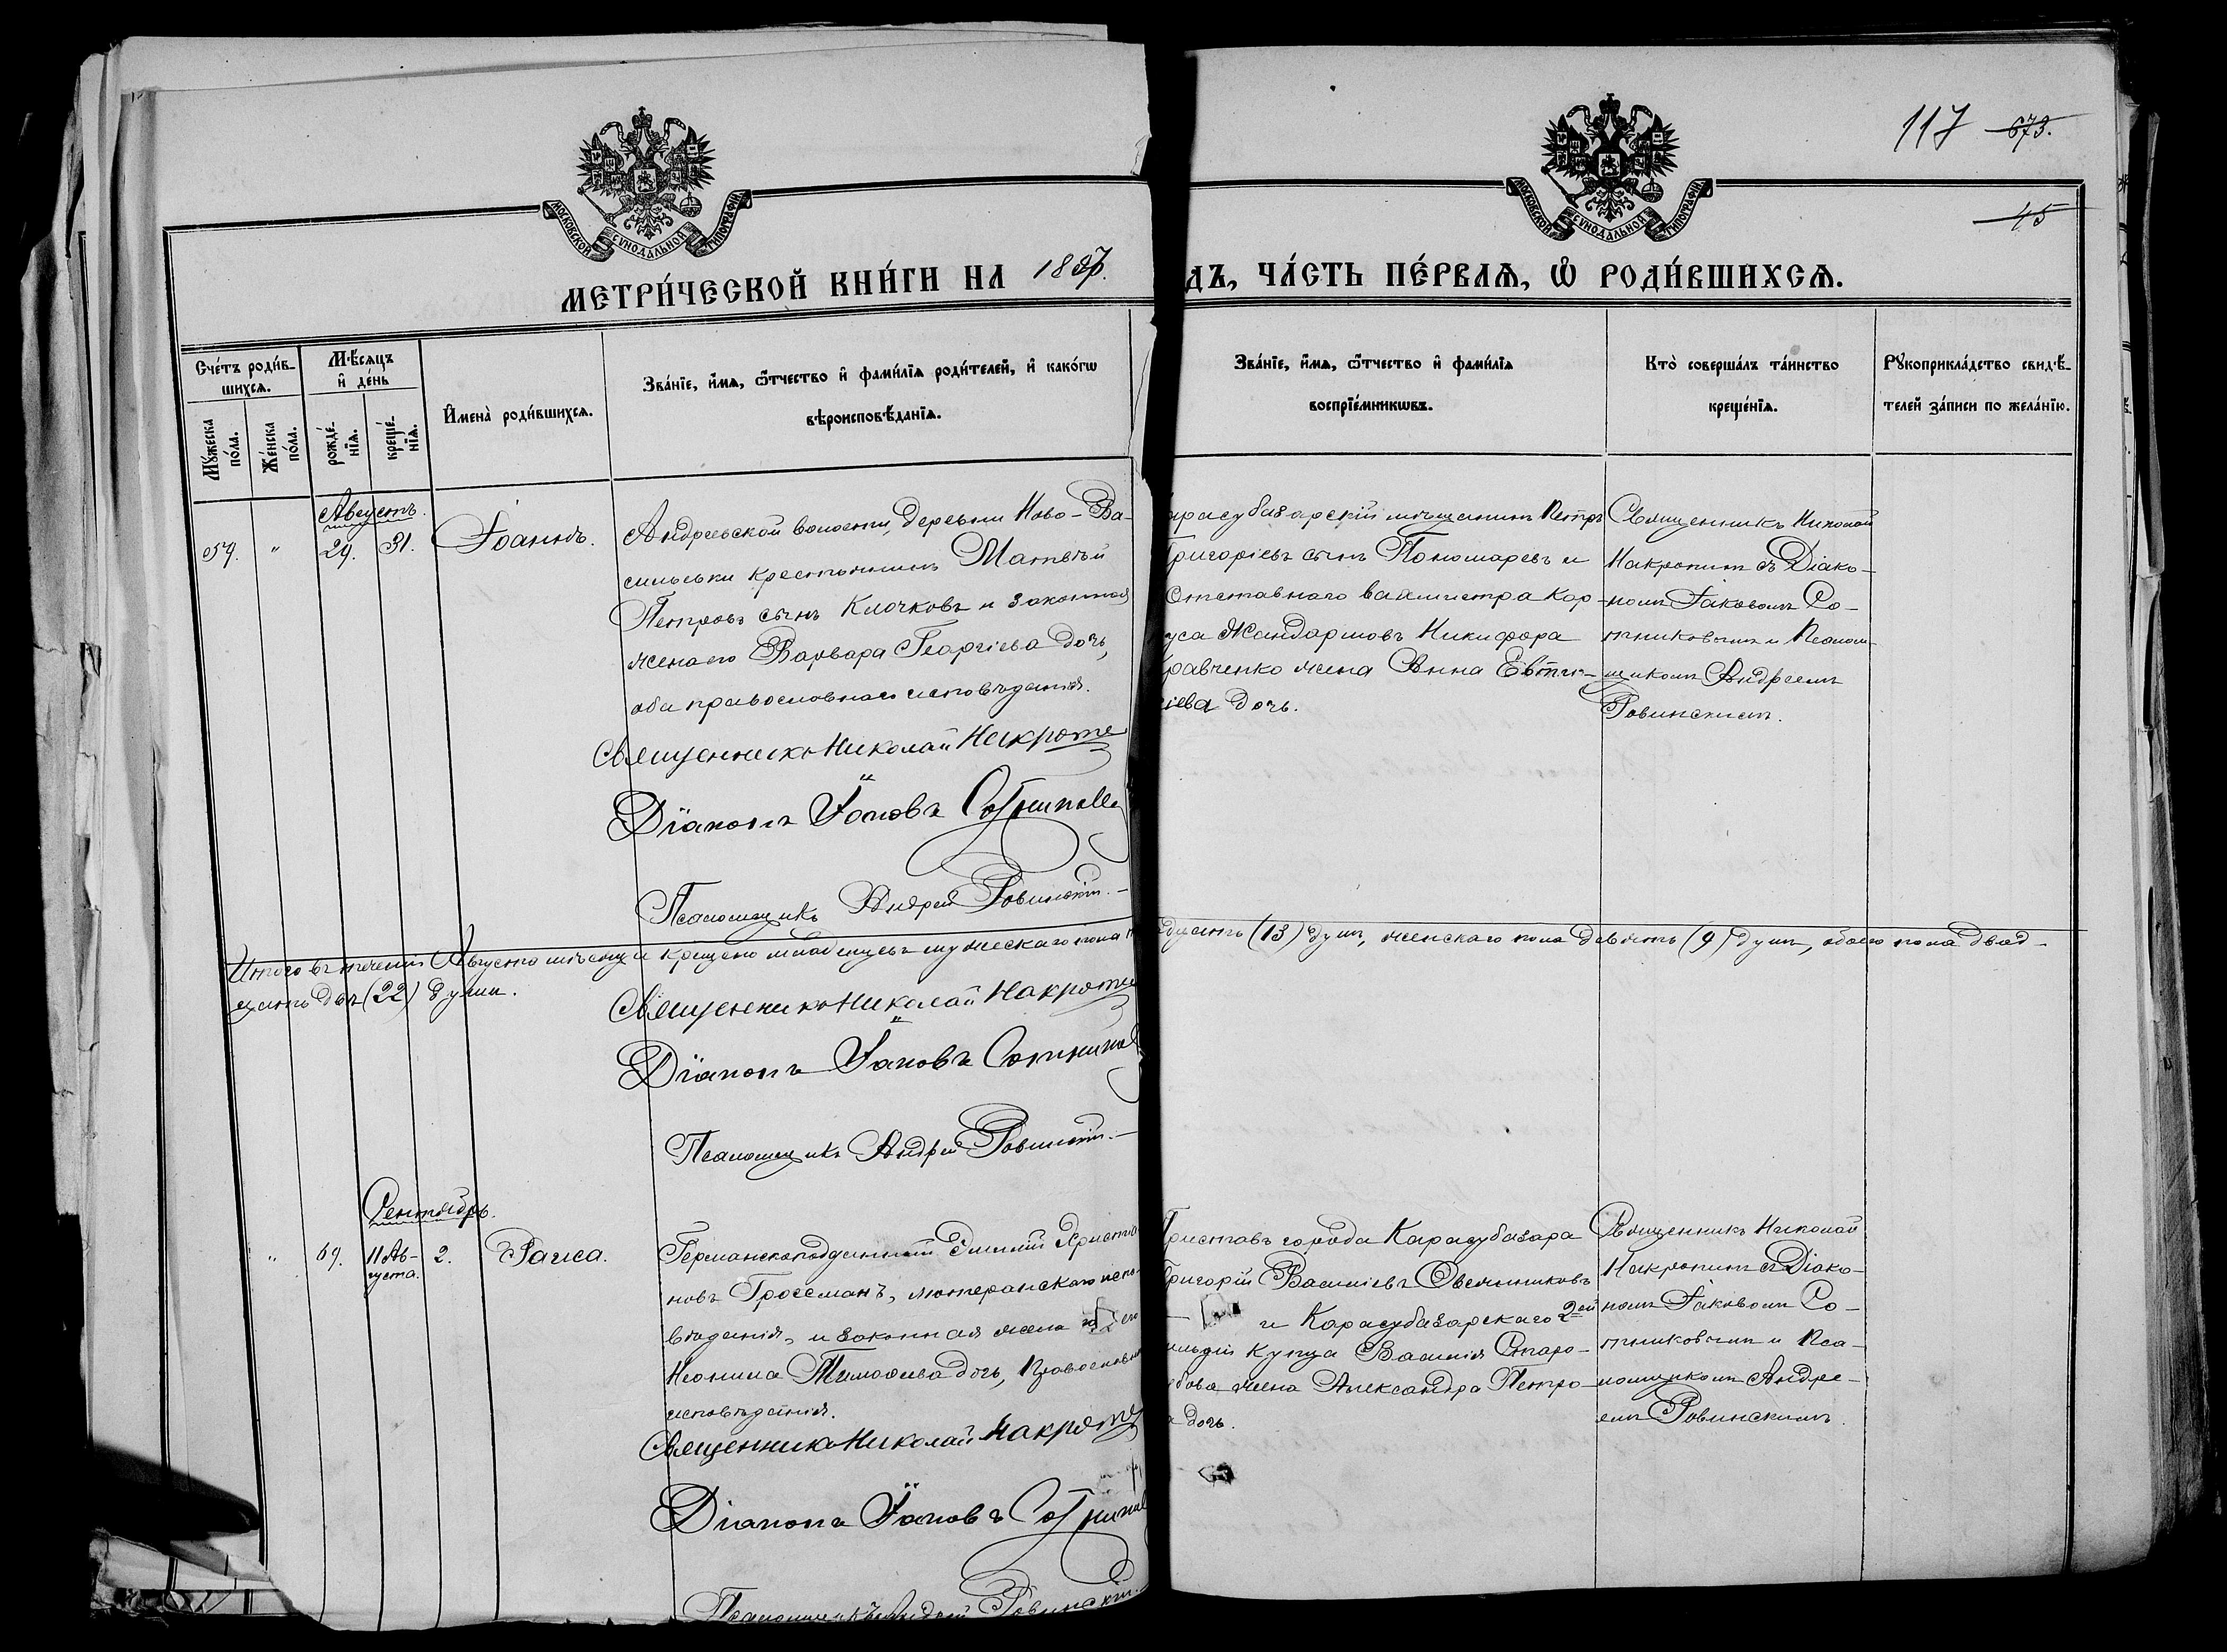 117 673.
45
МОСКОВСКОЙ СУНОДАЛЬНОЙ ТИПОГРАФІИ
МОСКОВСКОЙ СУНОДАЛЬНОЙ ТИПОГРАФІИ
МЕТРИ́ЧЕСКОЙ КНИ́ГИ НА 1887.
ДЪ, ЧА́СТЬ ПЕ́РВАЯ, Ѡ РОДИ́ВШИХСЯ.
Сче́тъ роди́в-
шихся.
Мѹ́жеска
по́ла.
Же́нска
по́ла.
Мѣ́сяцъ
и҆ де́нь
рожде́-
нїя.
креще́-
нїя.
И҆мена̀ роди́вшихся.
Зва́нїе, и҆́мя, ѻ҆́тчество и҆ фами́лїя роди́телей, и҆ како́гѡ
вѣроисповѣ́данїя.
Зва́нїе, и҆́мя, ѻ҆́тчество и҆ фами́лїя
воспрїе́мникѡвъ.
Кто̀ соверша́лъ та́инство
креще́нїя.
Рѹкоприкла́дство свидѣ́-
телей за́писи по жела́нїю.
Августъ.
" 29. 31. Іоаннъ.
Андреевской волости, деревни Ново-Ва-
сильевки крестьянинъ Матвѣй
Петровъ сынъ Клочковъ и законная
жена его Варвара Георгіева дочь,
оба православнаго исповѣданія.
Священникъ Николай
Діаконъ Іаковъ
Псаломщикъ Андрей Ровинскій.
арасубазарскій мѣщанинъ Петръ
Григорьевъ сынъ Пономаревъ и
Отставнаго вахмистра Кор-
уса Жандармовъ Никифора
равченко жена Анна Евтих-
іева дочь.
Священникъ Николай
Макропит съ Діако-
номъ Іаковомъ Со-
тниковымъ и Псалом-
щикомъ Андреемъ
Ровинскимъ.
Итого въ теченіи Августа мѣсяца крещено младенцевъ мужескаго пола
дцать (13) душъ, женскаго пола девять (9) душъ, обоего пола двад-
цать двѣ (22) души.
Священникъ Николай
Діаконъ Іаковъ
Псаломщикъ Андрей Ровинскій.
Сентябрь.
" 69. 11 Ав-
густа. 2. Раиса.
Германскоподданный
новъ Гроссманъ, лютеранскаго испо-
вѣданія, и законная жена его
Неонила Тимофеева дочь, православн
исповѣданія.
Священникъ Николай
Діаконъ Іаковъ
Псаломщикъ Андрей Ровинскій.
Приставъ города Карасубазара
Григорій Васильевъ Овсянниковъ
и Карасубазарскаго 2ой
ильдіи купца Василія Старо-
бова жена Александра Петро-
а дочь.
Священникъ Николай
Макропит съ Діако-
номъ Іаковомъ Со-
тниковымъ и Пса-
ломщикомъ Андре-
емъ Ровинскимъ.